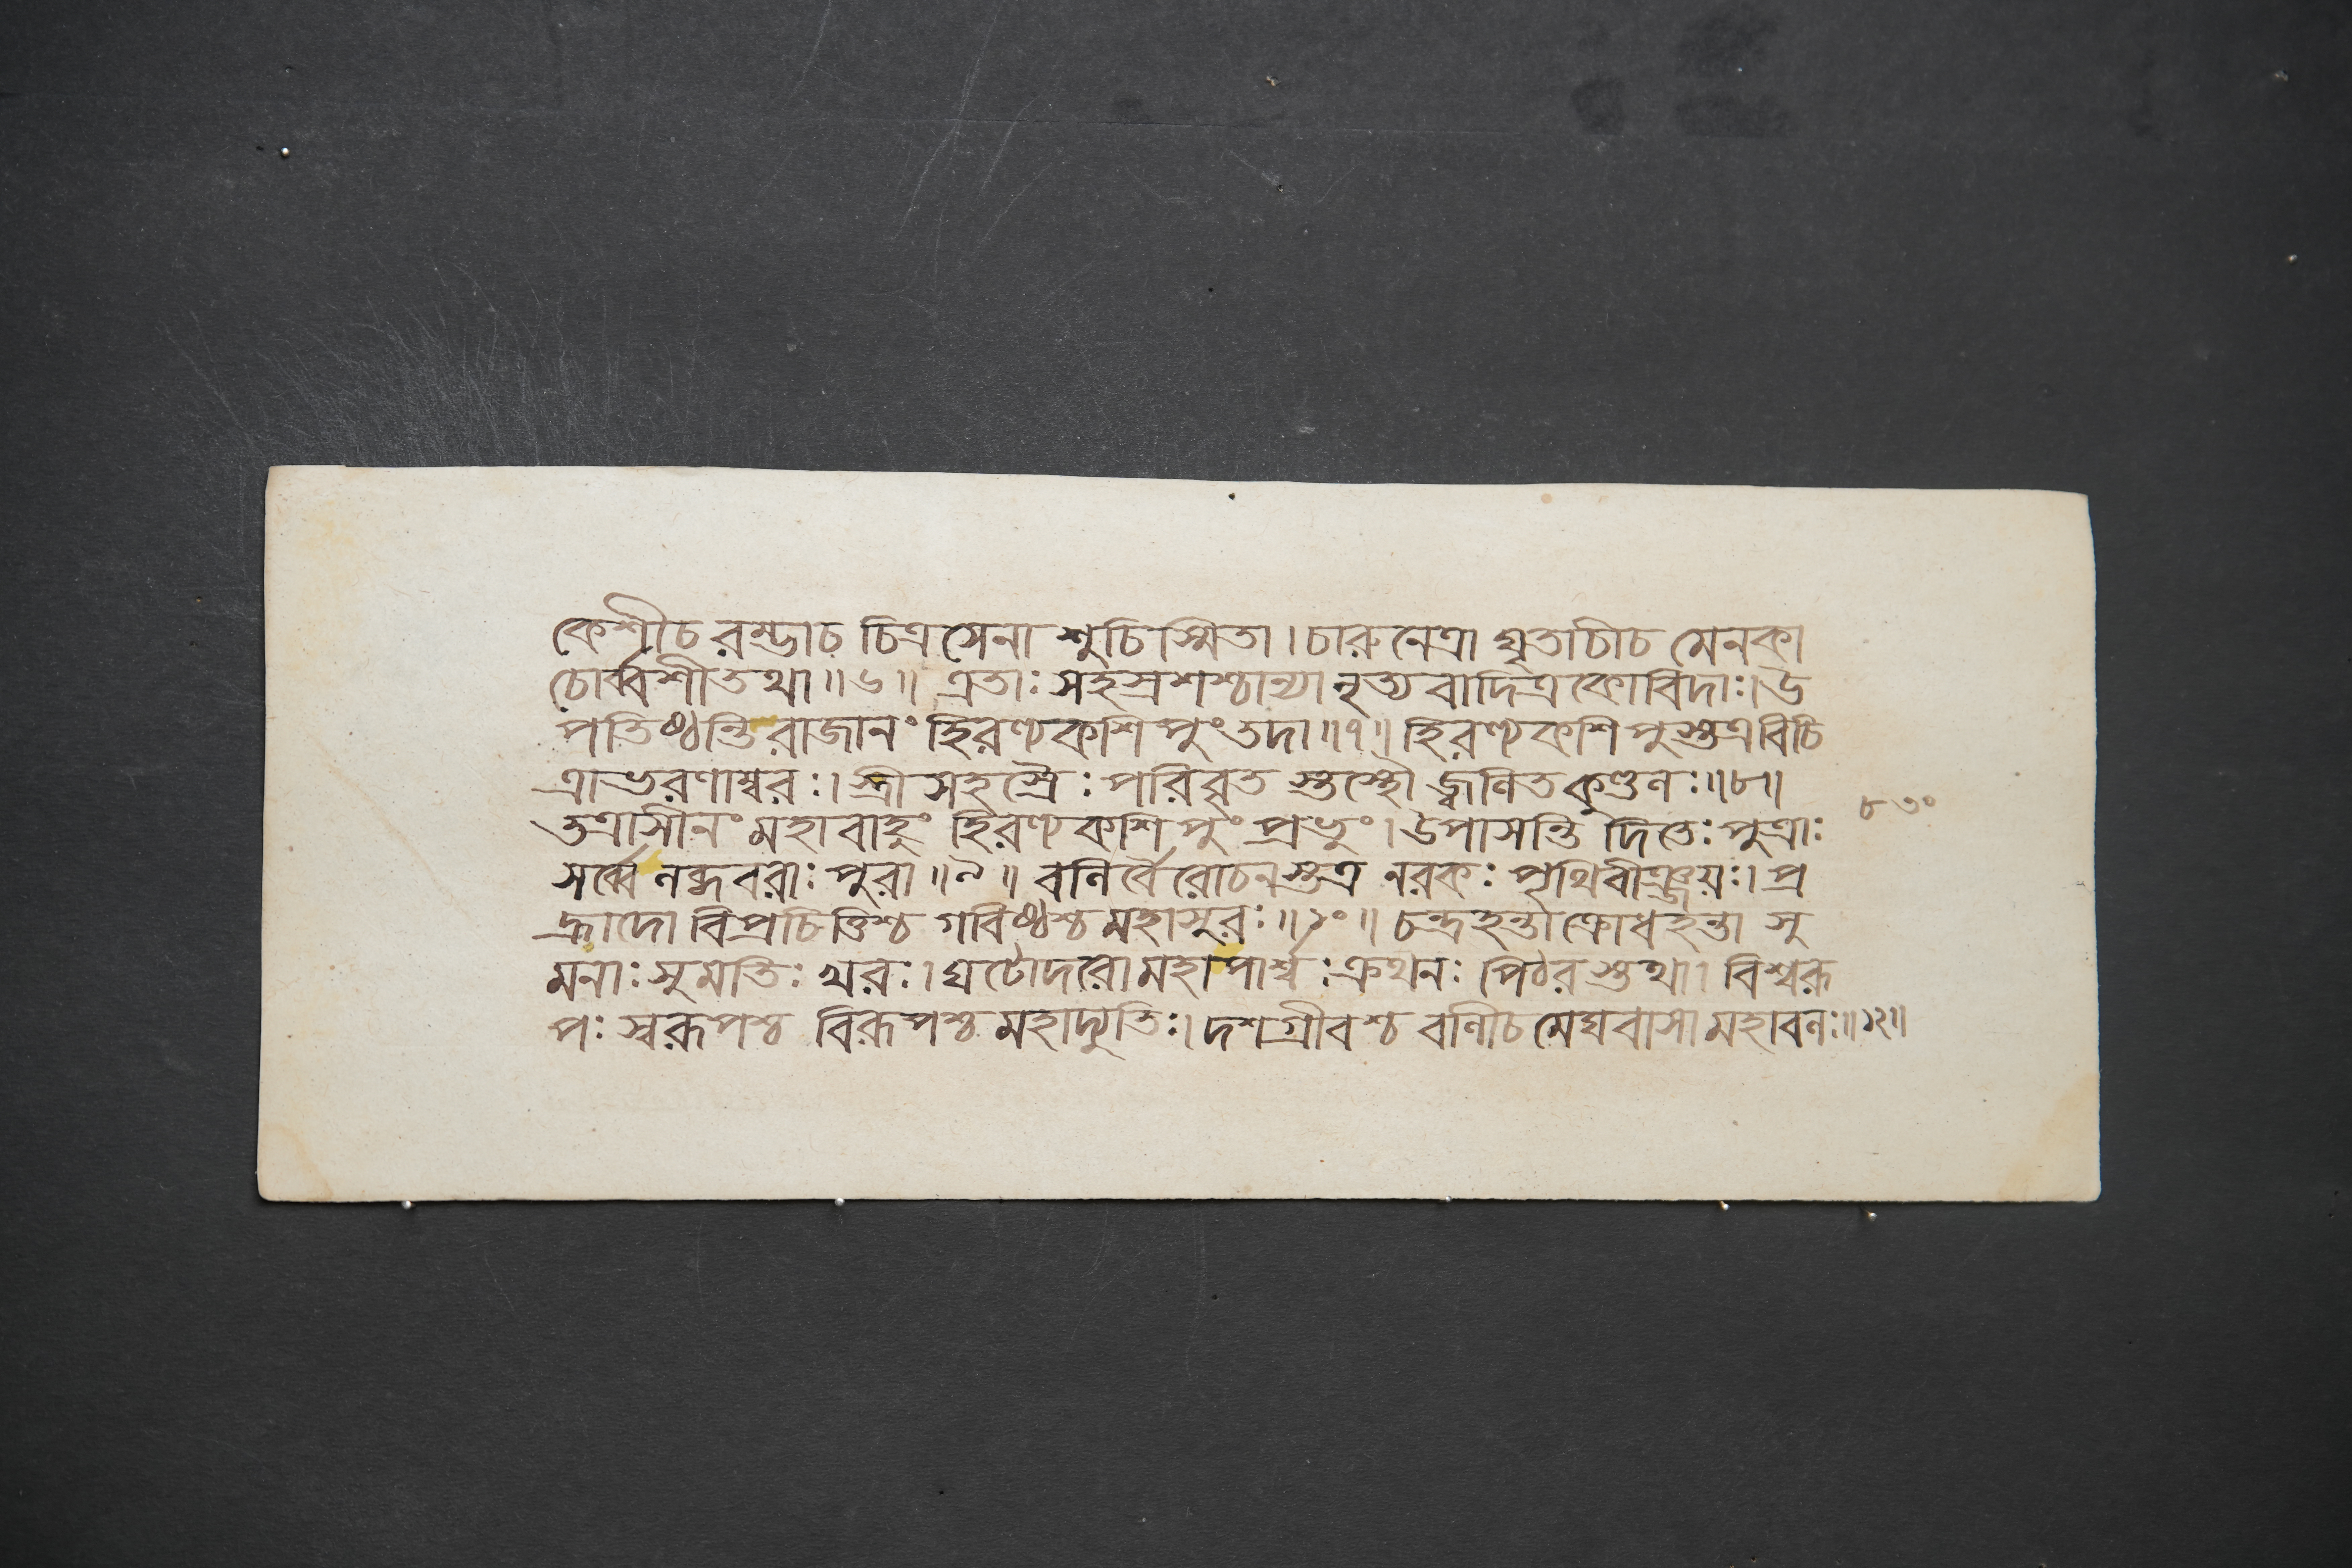 কেশীচ রম্ভাচ চিত্রসেনা শুচিস্মিতা । চারুনেত্রা ঘৃতাচীচ মেনকা
চোর্ব্বশীতথা ॥ ৬ ॥ এতাঃ সহস্রশশ্চান্যা নৃত্যবাদিত্রকোবিদাঃ । উ
পতিষ্ঠন্তি রাজানং হিরণ্যকশিপুং তদা ॥ ৭ ॥ হিরণ্যকশিপুস্তত্র বিচি
ত্রাভরণাম্বরঃ । স্ত্রীসহস্রৈঃ পরিবৃত স্তস্থৌ জ্বলিতকুণ্ডলঃ ॥ ৮ ॥
তত্রাসীনং মহাবাহুং হিরণ্যকশিপুং প্রভুং । উপাসন্তি দিতেঃ পুত্রাঃ
৮৩০
সর্ব্বে লব্ধবরাঃ পুরা ॥ ৯ ॥ বলির্বৈরোচনস্তত্র নরকঃ পৃথিবীঞ্জয়ঃ । প্র
হ্লাদো বিপ্রচিত্তিশ্চ গবিষ্ঠশ্চ মহাসুরঃ ॥ ১০ ॥ চন্দ্রহন্তা ক্রোধহন্তা সু
মনাঃ সুমতিঃ খরঃ । ঘটোদরো মহাপার্শ্বঃ ক্রথনঃ পিঠরস্তথা । বিশ্বরূ
পঃ স্বরূপশ্চ বিরূপশ্চ মহাদ্যুতিঃ । দশগ্রীবশ্চ বলীচ মেঘবাসা মহাবলঃ ॥ ১২ ॥